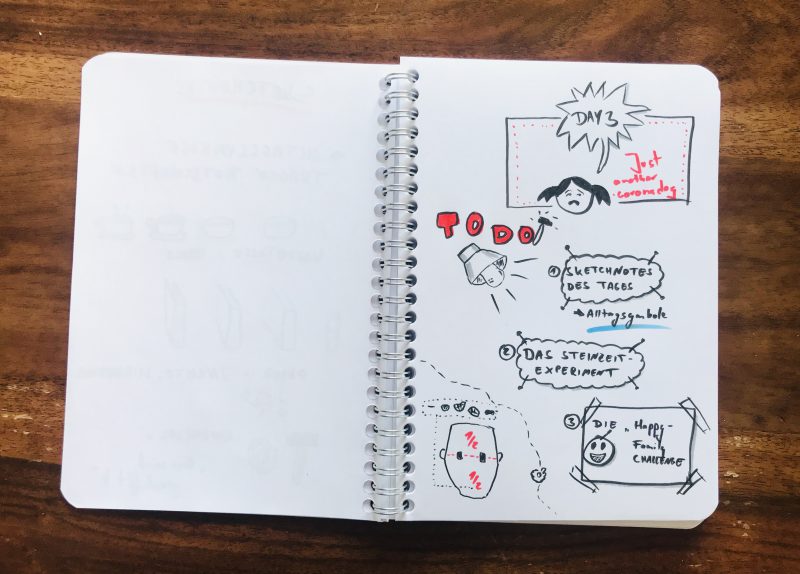 DAY 3
Just
another
coronadog
TO DO
① SKETCHNOTES
DES TAGES
→ Alltagssymbole
② DAS STEINZEIT-
EXPERIMENT
③ DIE „Happy-
Family
CHALLENGE
1/2
1/2